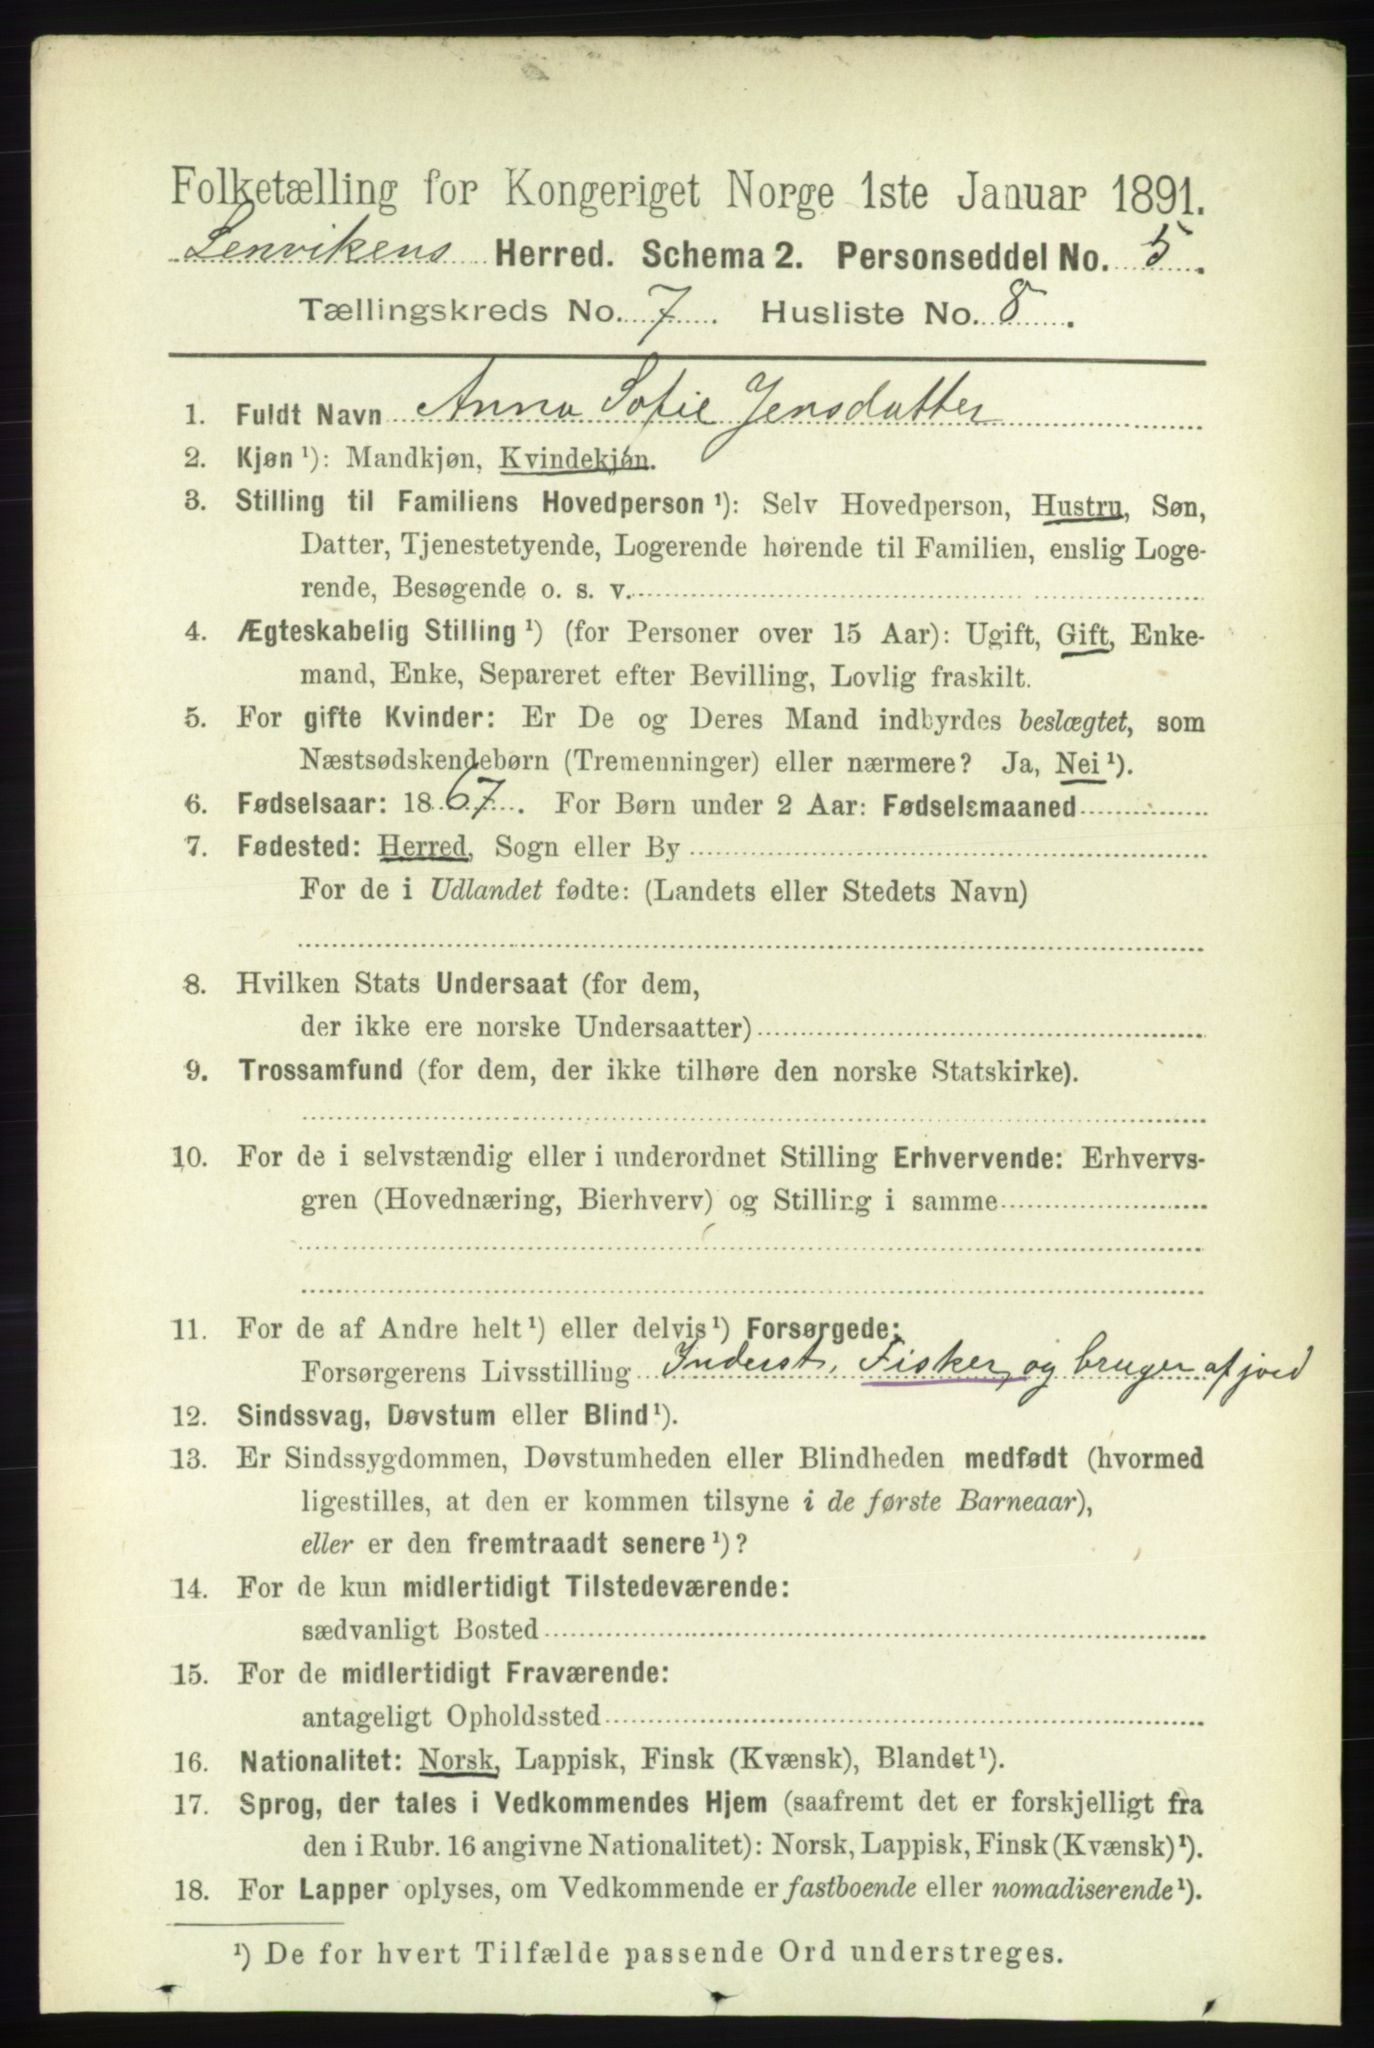 Folketælling for Kongeriget Norge 1ste Januar 1891.
Lenvikens Herred. Schema 2. Personseddel No. 5.
Tællingskreds No. 7. Husliste No. 8.
1. Fuldt Navn Anna Sofie Jensdatter
2. Kjøn ¹): Mandkjøn, Kvindekjøn.
3. Stilling til Familiens Hovedperson ¹): Selv Hovedperson, Hustru, Søn,
Datter, Tjenestetyende, Logerende hørende til Familien, enslig Loge-
rende, Besøgende o. s. v.
4. Ægteskabelig Stilling ¹) (for Personer over 15 Aar): Ugift, Gift, Enke-
mand, Enke, Separeret efter Bevilling, Lovlig fraskilt.
5. For gifte Kvinder: Er De og Deres Mand indbyrdes beslægtet, som
Næstsødskendebørn (Tremenninger) eller nærmere? Ja, Nei ¹).
6. Fødselsaar: 1867. For Børn under 2 Aar: Fødselsmaaned
7. Fødested: Herred, Sogn eller By
For de i Udlandet fødte: (Landets eller Stedets Navn)
8. Hvilken Stats Undersaat (for dem,
der ikke ere norske Undersaatter)
9. Trossamfund (for dem, der ikke tilhøre den norske Statskirke).
10. For de i selvstændig eller i underordnet Stilling Erhvervende: Erhvervs-
gren (Hovednæring, Bierhverv) og Stilling i samme
11. For de af Andre helt ¹) eller delvis ¹) Forsørgede:
Forsørgerens Livsstilling Inderst, Fisker og bruger af jord
12. Sindssvag, Døvstum eller Blind ¹).
13. Er Sindssygdommen, Døvstumheden eller Blindheden medfødt (hvormed
ligestilles, at den er kommen tilsyne i de første Barneaar),
eller er den fremtraadt senere ¹)?
14. For de kun midlertidigt Tilstedeværende:
sædvanligt Bosted
15. For de midlertidigt Fraværende:
antageligt Opholdssted
16. Nationalitet: Norsk, Lappisk, Finsk (Kvænsk), Blandet ¹).
17. Sprog, der tales i Vedkommendes Hjem (saafremt det er forskjelligt fra
den i Rubr. 16 angivne Nationalitet): Norsk, Lappisk, Finsk (Kvænsk) ¹).
18. For Lapper oplyses, om Vedkommende er fastboende eller nomadiserende ¹).
¹) De for hvert Tilfælde passende Ord understreges.